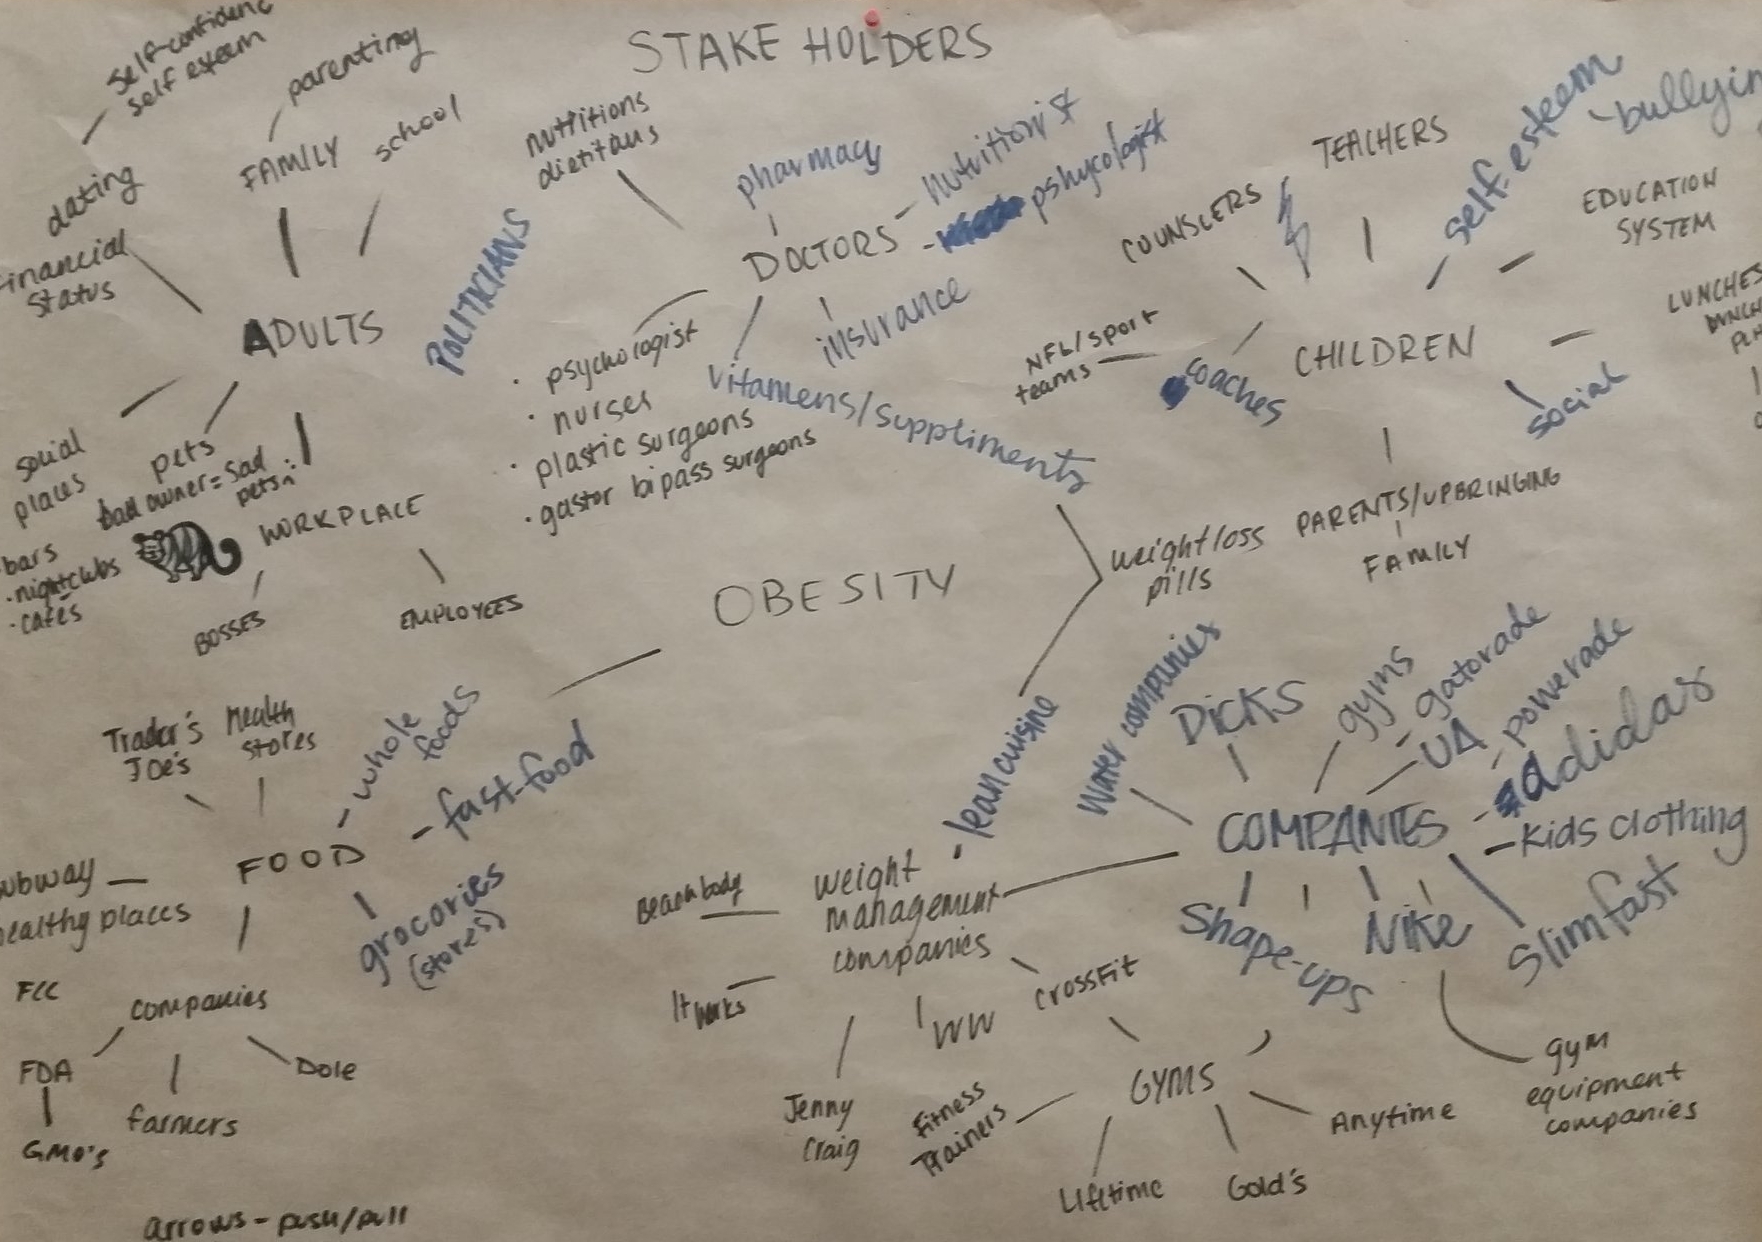 STAKE HOLDERS
self-confidenc
self exteem
parenting
FAMILY
school
dating
Financial
status
ADULTS
social
places
bars
·nightclubs
·cafes
pets
bad owner=sad
pets
WORKPLACE
BOSSES
EMPLOYEES
POLITICIANS
nutritions
dietitans
pharmacy
DOCTORS
- nutritionist
- pshycologist
insurance
Vitamens/suppliments
· psychologist
· nurses
· plastic surgeons
· gastor bipass surgeons
weightloss
pills
· lean cuisine
TEACHERS
COUNSLERS
self-esteem
-bullyin
EDUCATION
SYSTEM
LUNCHES
CHILDREN
social
NFL/sport
teams
coaches
PARENTS/UPBRINGING
FAMILY
OBESITY
Trader's
JOe's
Health
stores
whole
foods
- fast-food
FOOD
ubway
ealthy places
grocories
(stores)
FCC
companies
FDA
GMO's
farmers
Dole
arrows - push/pull
Water companies
DICKS
gyms
gatorade
UA
powerade
adidas
COMPANIES
- Kids clothing
Slimfast
Shape-ups
Nike
gym
equipment
companies
weight
management
companies
Beachbody
It works
Jenny
Craig
WW
CrossFit
GYMS
Fitness
Trainers
Lifetime
Gold's
Anytime